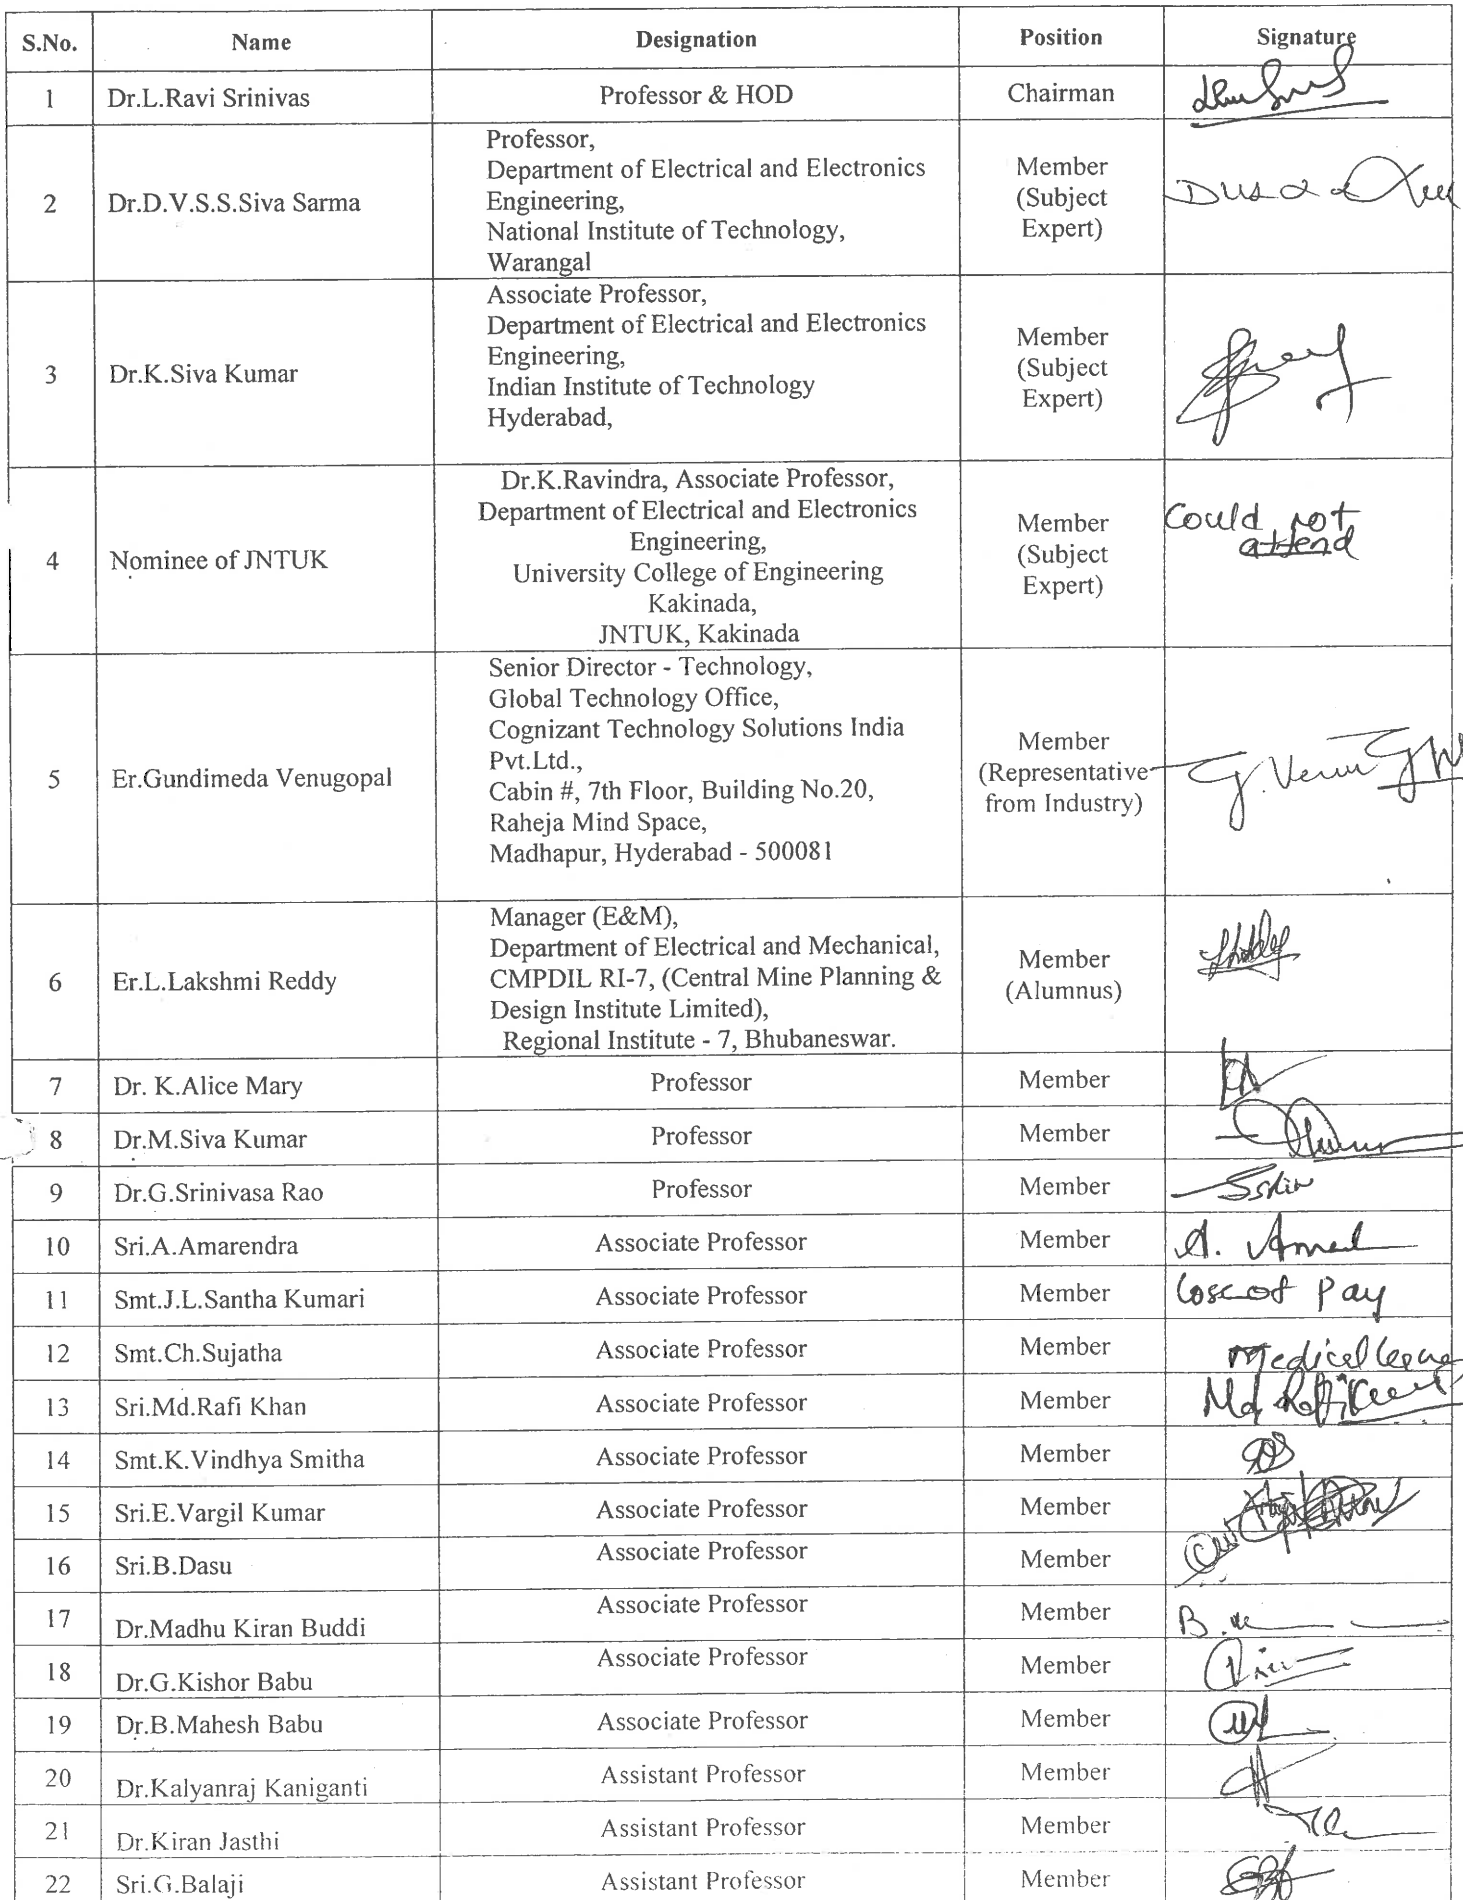 S.No. Name Designation Position Signature
1 Dr.L.Ravi Srinivas Professor & HOD Chairman
2 Dr.D.V.S.S.Siva Sarma Professor,
Department of Electrical and Electronics
Engineering,
National Institute of Technology,
Warangal
Member
(Subject
Expert)
3 Dr.K.Siva Kumar Associate Professor,
Department of Electrical and Electronics
Engineering,
Indian Institute of Technology
Hyderabad,
Member
(Subject
Expert)
4 Nominee of JNTUK Dr.K.Ravindra, Associate Professor,
Department of Electrical and Electronics
Engineering,
University College of Engineering
Kakinada,
JNTUK, Kakinada
Member
(Subject
Expert)
Could not
attend
5 Er.Gundimeda Venugopal Senior Director - Technology,
Global Technology Office,
Cognizant Technology Solutions India
Pvt.Ltd.,
Cabin #, 7th Floor, Building No.20,
Raheja Mind Space,
Madhapur, Hyderabad - 500081
Member
(Representative
from Industry)
6 Er.L.Lakshmi Reddy Manager (E&M),
Department of Electrical and Mechanical,
CMPDIL RI-7, (Central Mine Planning &
Design Institute Limited),
Regional Institute - 7, Bhubaneswar.
Member
(Alumnus)
7 Dr. K.Alice Mary Professor Member
8 Dr.M.Siva Kumar Professor Member
9 Dr.G.Srinivasa Rao Professor Member
10 Sri.A.Amarendra Associate Professor Member
11 Smt.J.L.Santha Kumari Associate Professor Member Loss of Pay
12 Smt.Ch.Sujatha Associate Professor Member Medical leave
13 Sri.Md.Rafi Khan Associate Professor Member
14 Smt.K.Vindhya Smitha Associate Professor Member
15 Sri.E.Vargil Kumar Associate Professor Member
16 Sri.B.Dasu Associate Professor Member
17 Dr.Madhu Kiran Buddi Associate Professor Member
18 Dr.G.Kishor Babu Associate Professor Member
19 Dr.B.Mahesh Babu Associate Professor Member
20 Dr.Kalyanraj Kaniganti Assistant Professor Member
21 Dr.Kiran Jasthi Assistant Professor Member
22 Sri.G.Balaji Assistant Professor Member